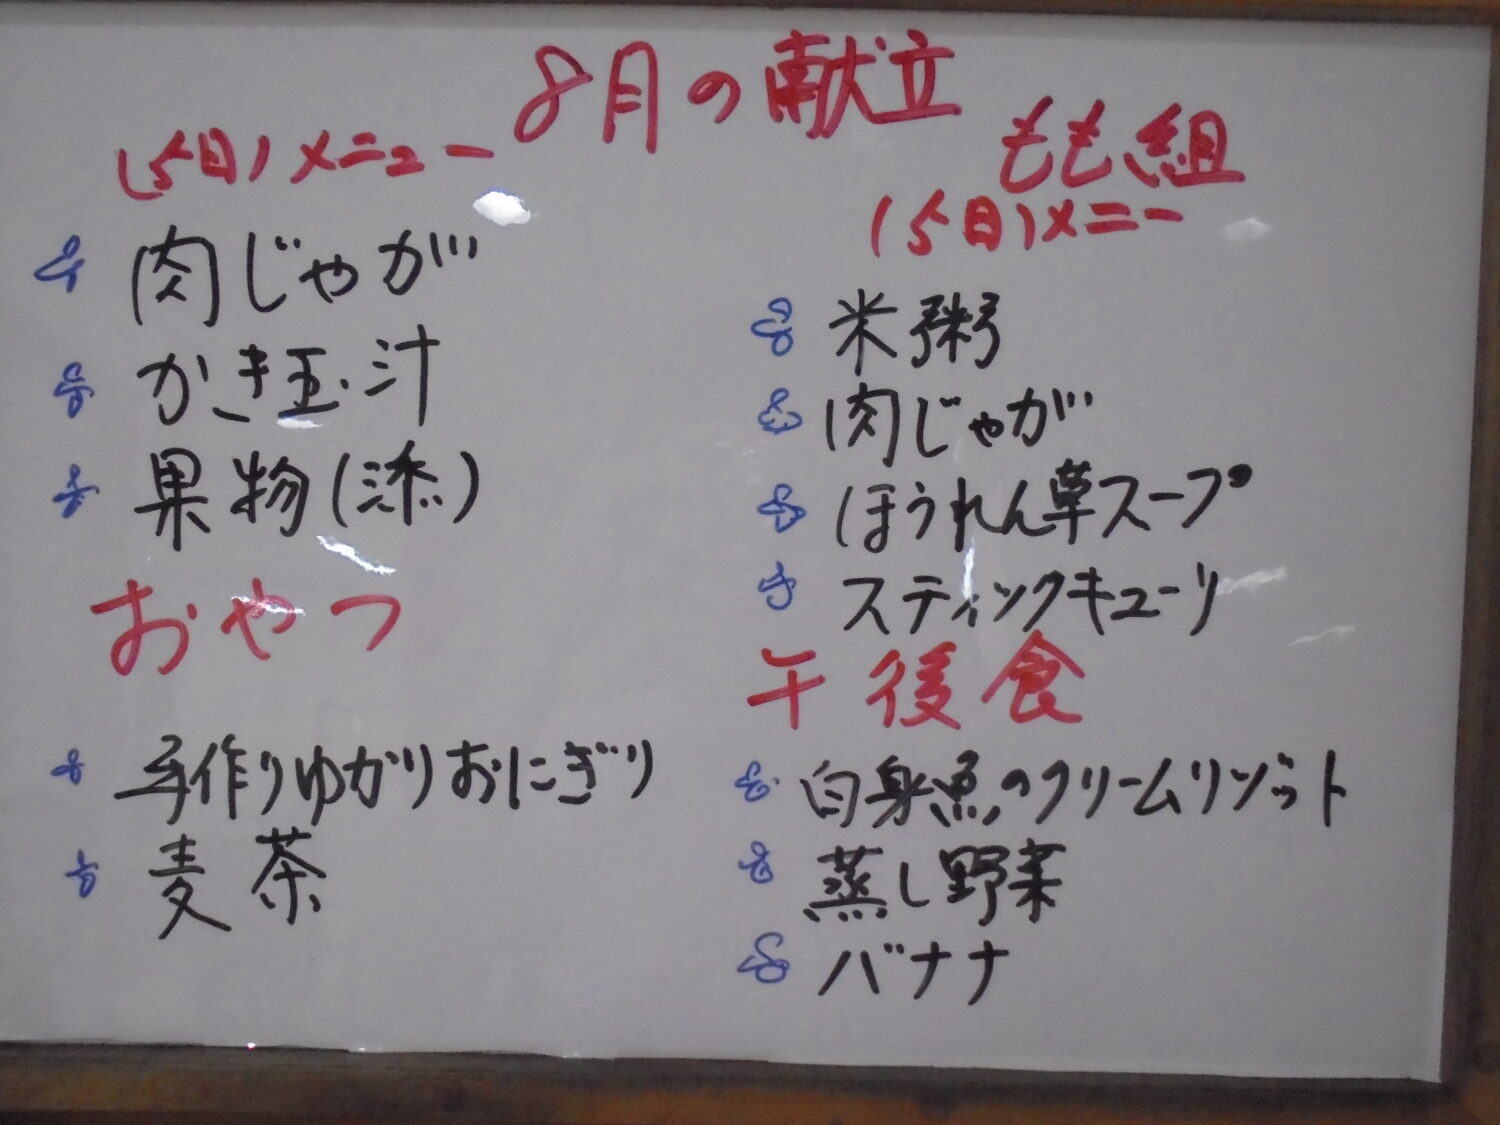 8月の献立
(5日)メニュー
肉じゃが
かき玉汁
果物(添)
おやつ
手作りゆかりおにぎり
麦茶
もも組
(5日)メニー
米粥
肉じゃが
ほうれん草スープ
スティックキューリ
午後食
白身魚のクリームリゾット
蒸し野菜
バナナ